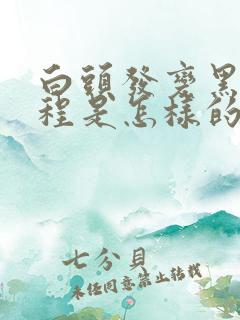 白頭發變黑
程是怎樣的
七分貝
未經同意禁止轉載